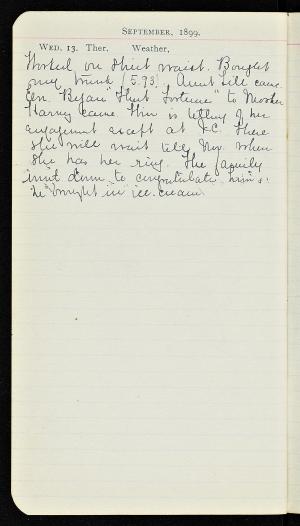 September, 1899.
Wed. 13. Ther. Weather,
Worked on shirt waist. Bought
my trunk (5.98). Aunt Lile came
Eve. Began "Hunt Fortune" to Mother
Harvey came. She is telling of her
engagement except at J.C. There
she will wait till Nov. when
she has her ring. The family
went down to congratulate him &
he brought in ice-cream